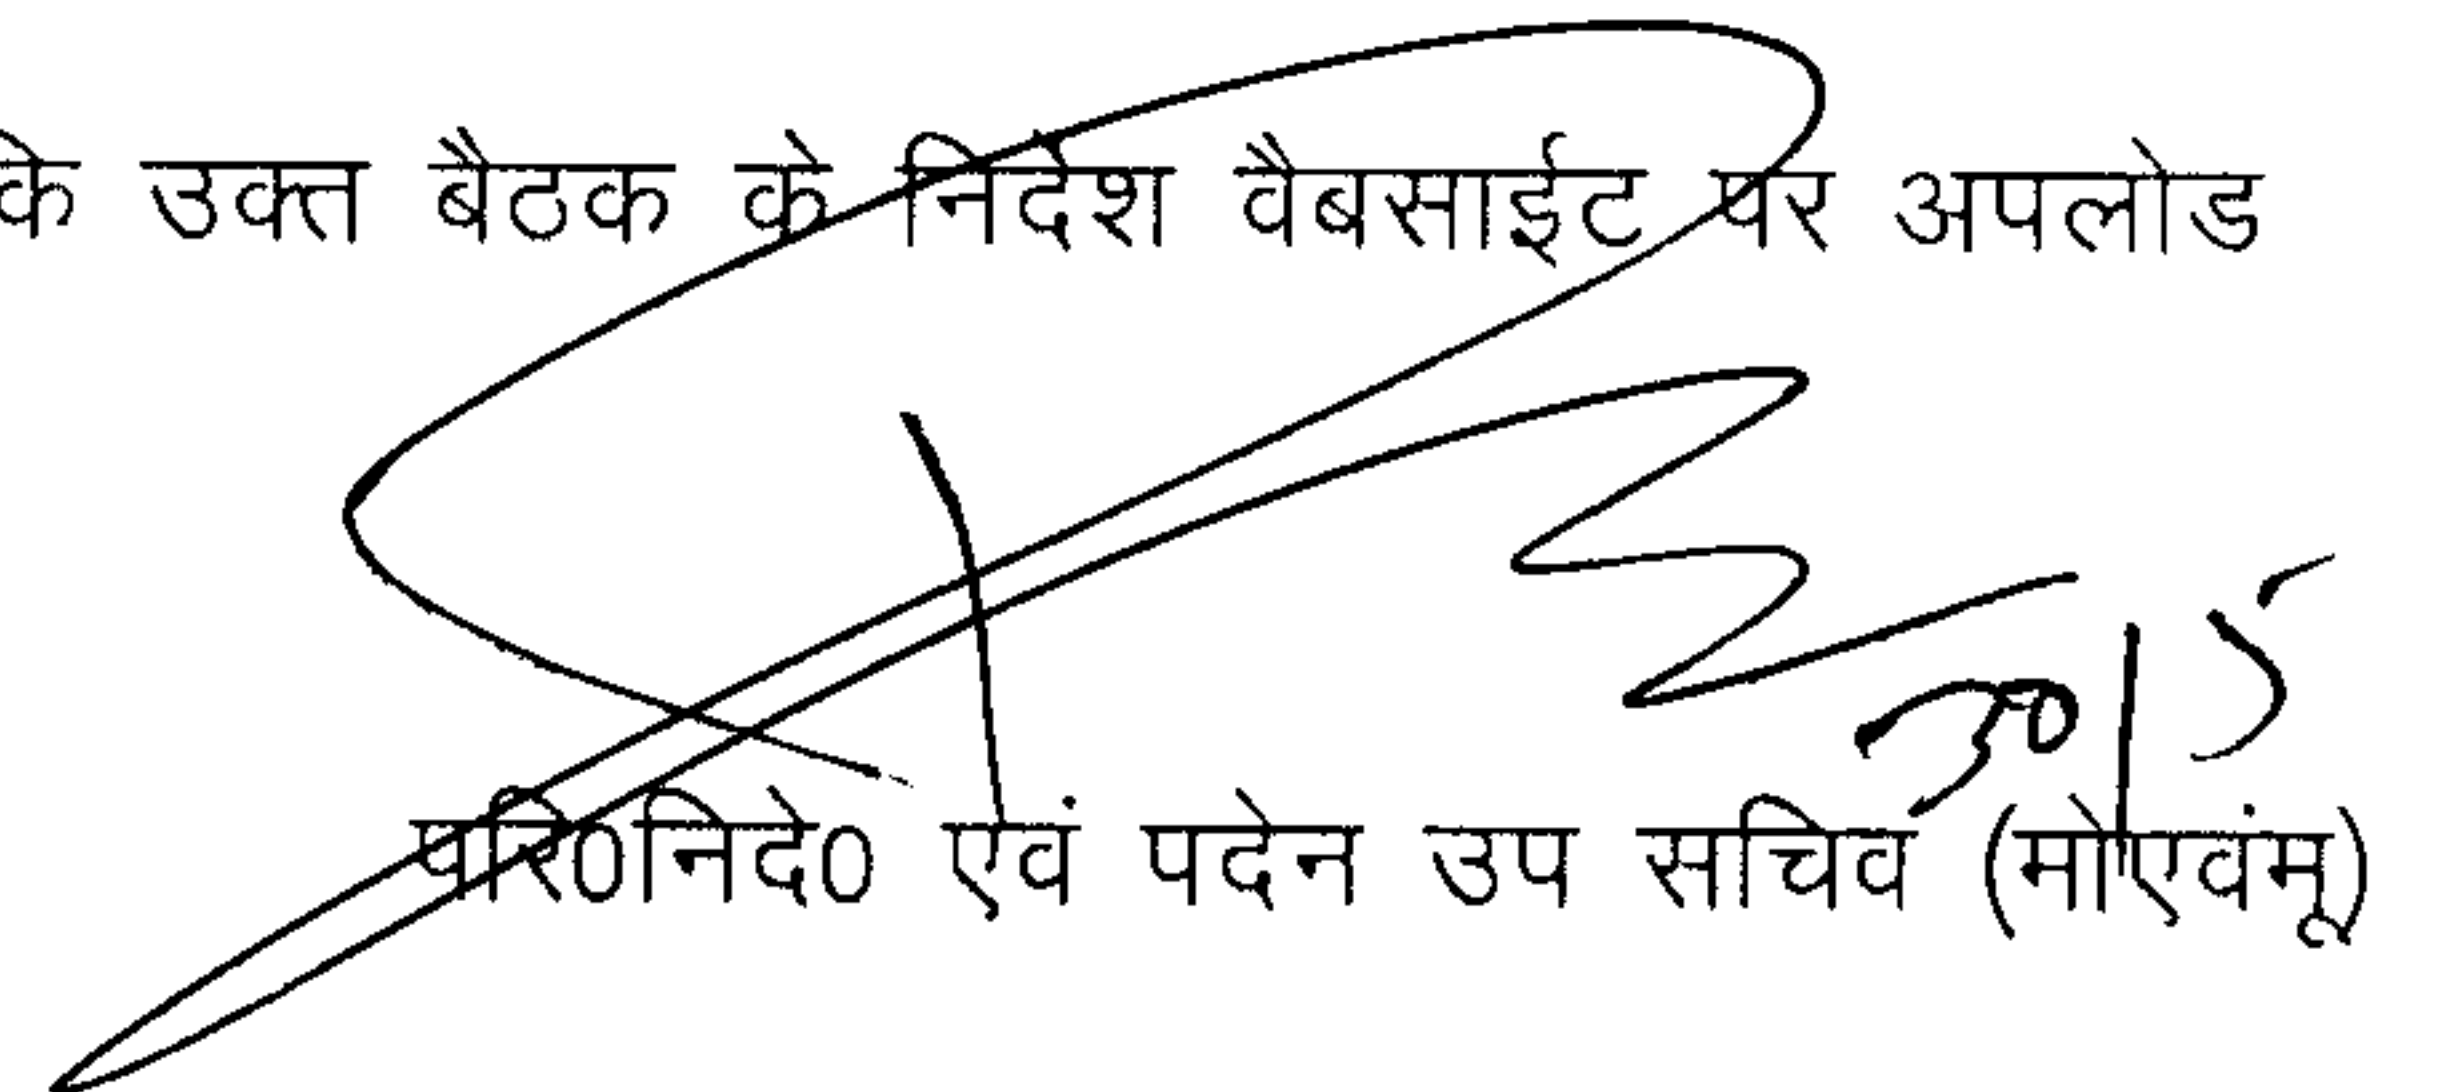 के उक्त बैठक के निर्देश वैबसाईट पर अपलोड
30/5
परि०निदे० एवं पदेन उप सचिव (मोएवंमू)